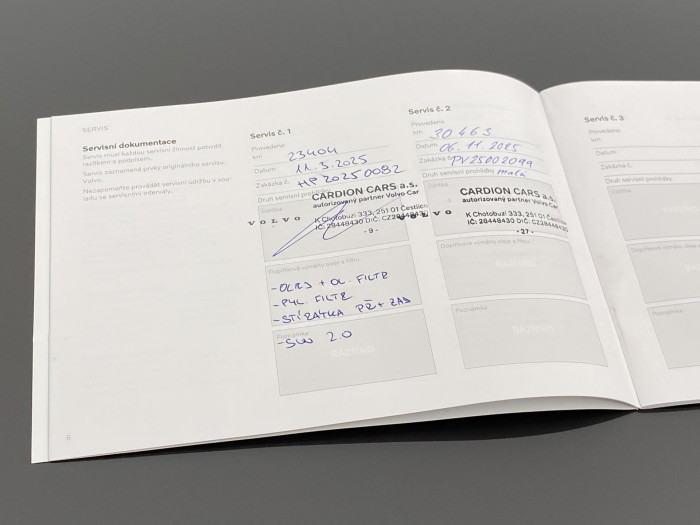 SERVIS
Servisní dokumentace
Servis musí každou servisní činnost potvrdit
razítkem a podpisem.
Servis zaznamená prvky originálního servisu
Volvo.
Nezapomeňte provádět servisní údržbu v sou-
ladu se servisními intervaly.
6
Servis č. 1
Provedeno
km 23404
Datum 11.3.2025
Zakázka č. HP20250082
Druh servisní prohlídky
Razítko
CARDION CARS a.s.
autorizovaný partner Volvo Car
VOLVO
K Chotobuzi 333, 251 01 Čestlice
IČ: 28448430 DIČ: CZ28448430
- 9 -
Doplňkové výměny oleje a filtru
- OLEJ + OL. FILTR
- PYL. FILTR
- STÍRÁTKA PŘ + ZAD
Poznámka
- SW 2.0
RAZÍTKO
Servis č. 2
Provedeno
km
Datum 06.11.2025
Zakázka PV25002099
Druh servisní prohlídky malá
Razítko
CARDION CARS a.s.
autorizovaný partner Volvo Car
VOLVO
K Chotobuzi 333, 251 01 Čestlice
IČ: 28448430 DIČ: CZ
- 27 -
Doplňkové výměny oleje a filtru
RAZÍTKO
Poznámka
RAZÍTKO
Servis č. 3
Provedeno
km
Datum
Zakázka č.
Druh servisní prohlídky
Razítko
Doplňkové výměny
Poznámka